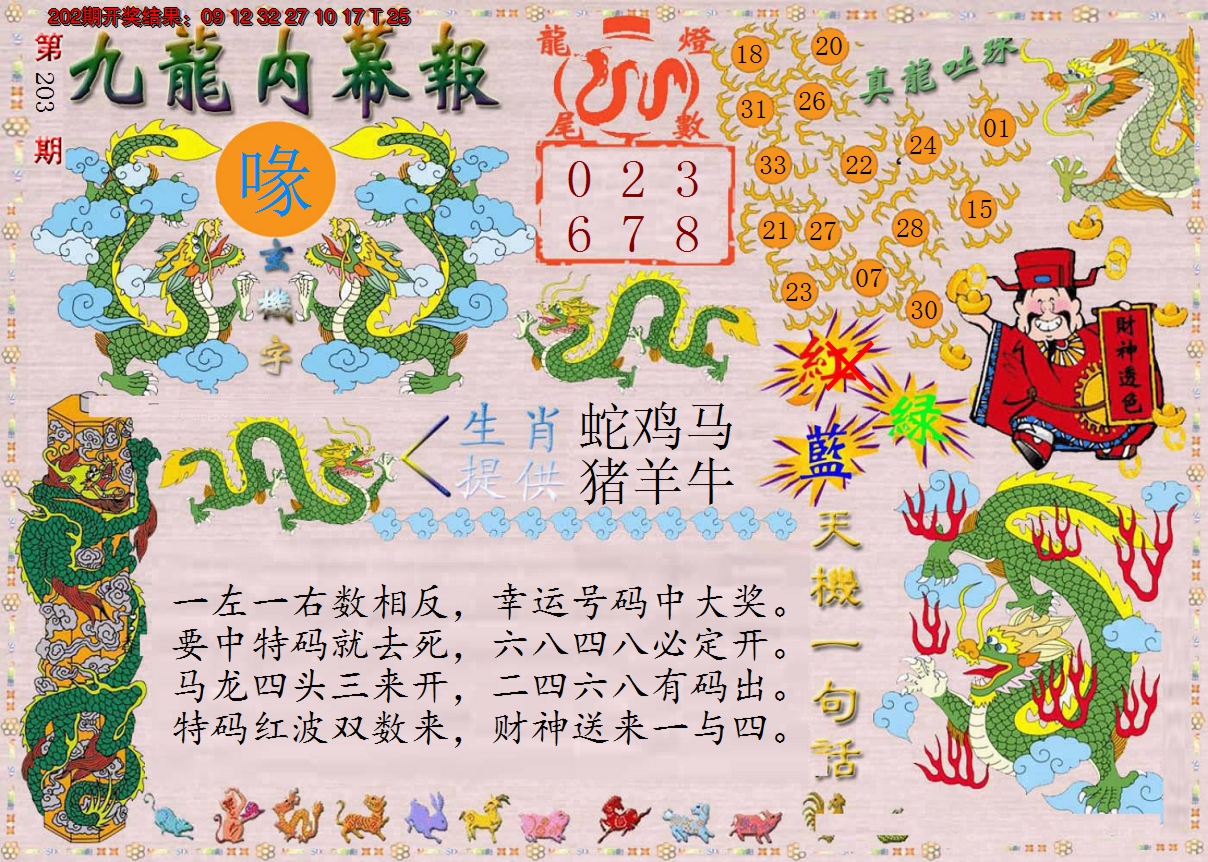 202期开奖结果：09 12 32 27 10 17 T 25
第203期
九龍内幕報
喙
玄機字
龍燈
尾數
0 2 3
6 7 8
真龍吐珠
18 20
31 26
24 01
33 22
15
21 27 28
23 07
30
紅
綠
藍
財神透色
生肖 蛇鸡马
提供 猪羊牛
天機一句话
一左一右数相反，幸运号码中大奖。
要中特码就去死，六八四八必定开。
马龙四头三来开，二四六八有码出。
特码红波双数来，财神送来一与四。